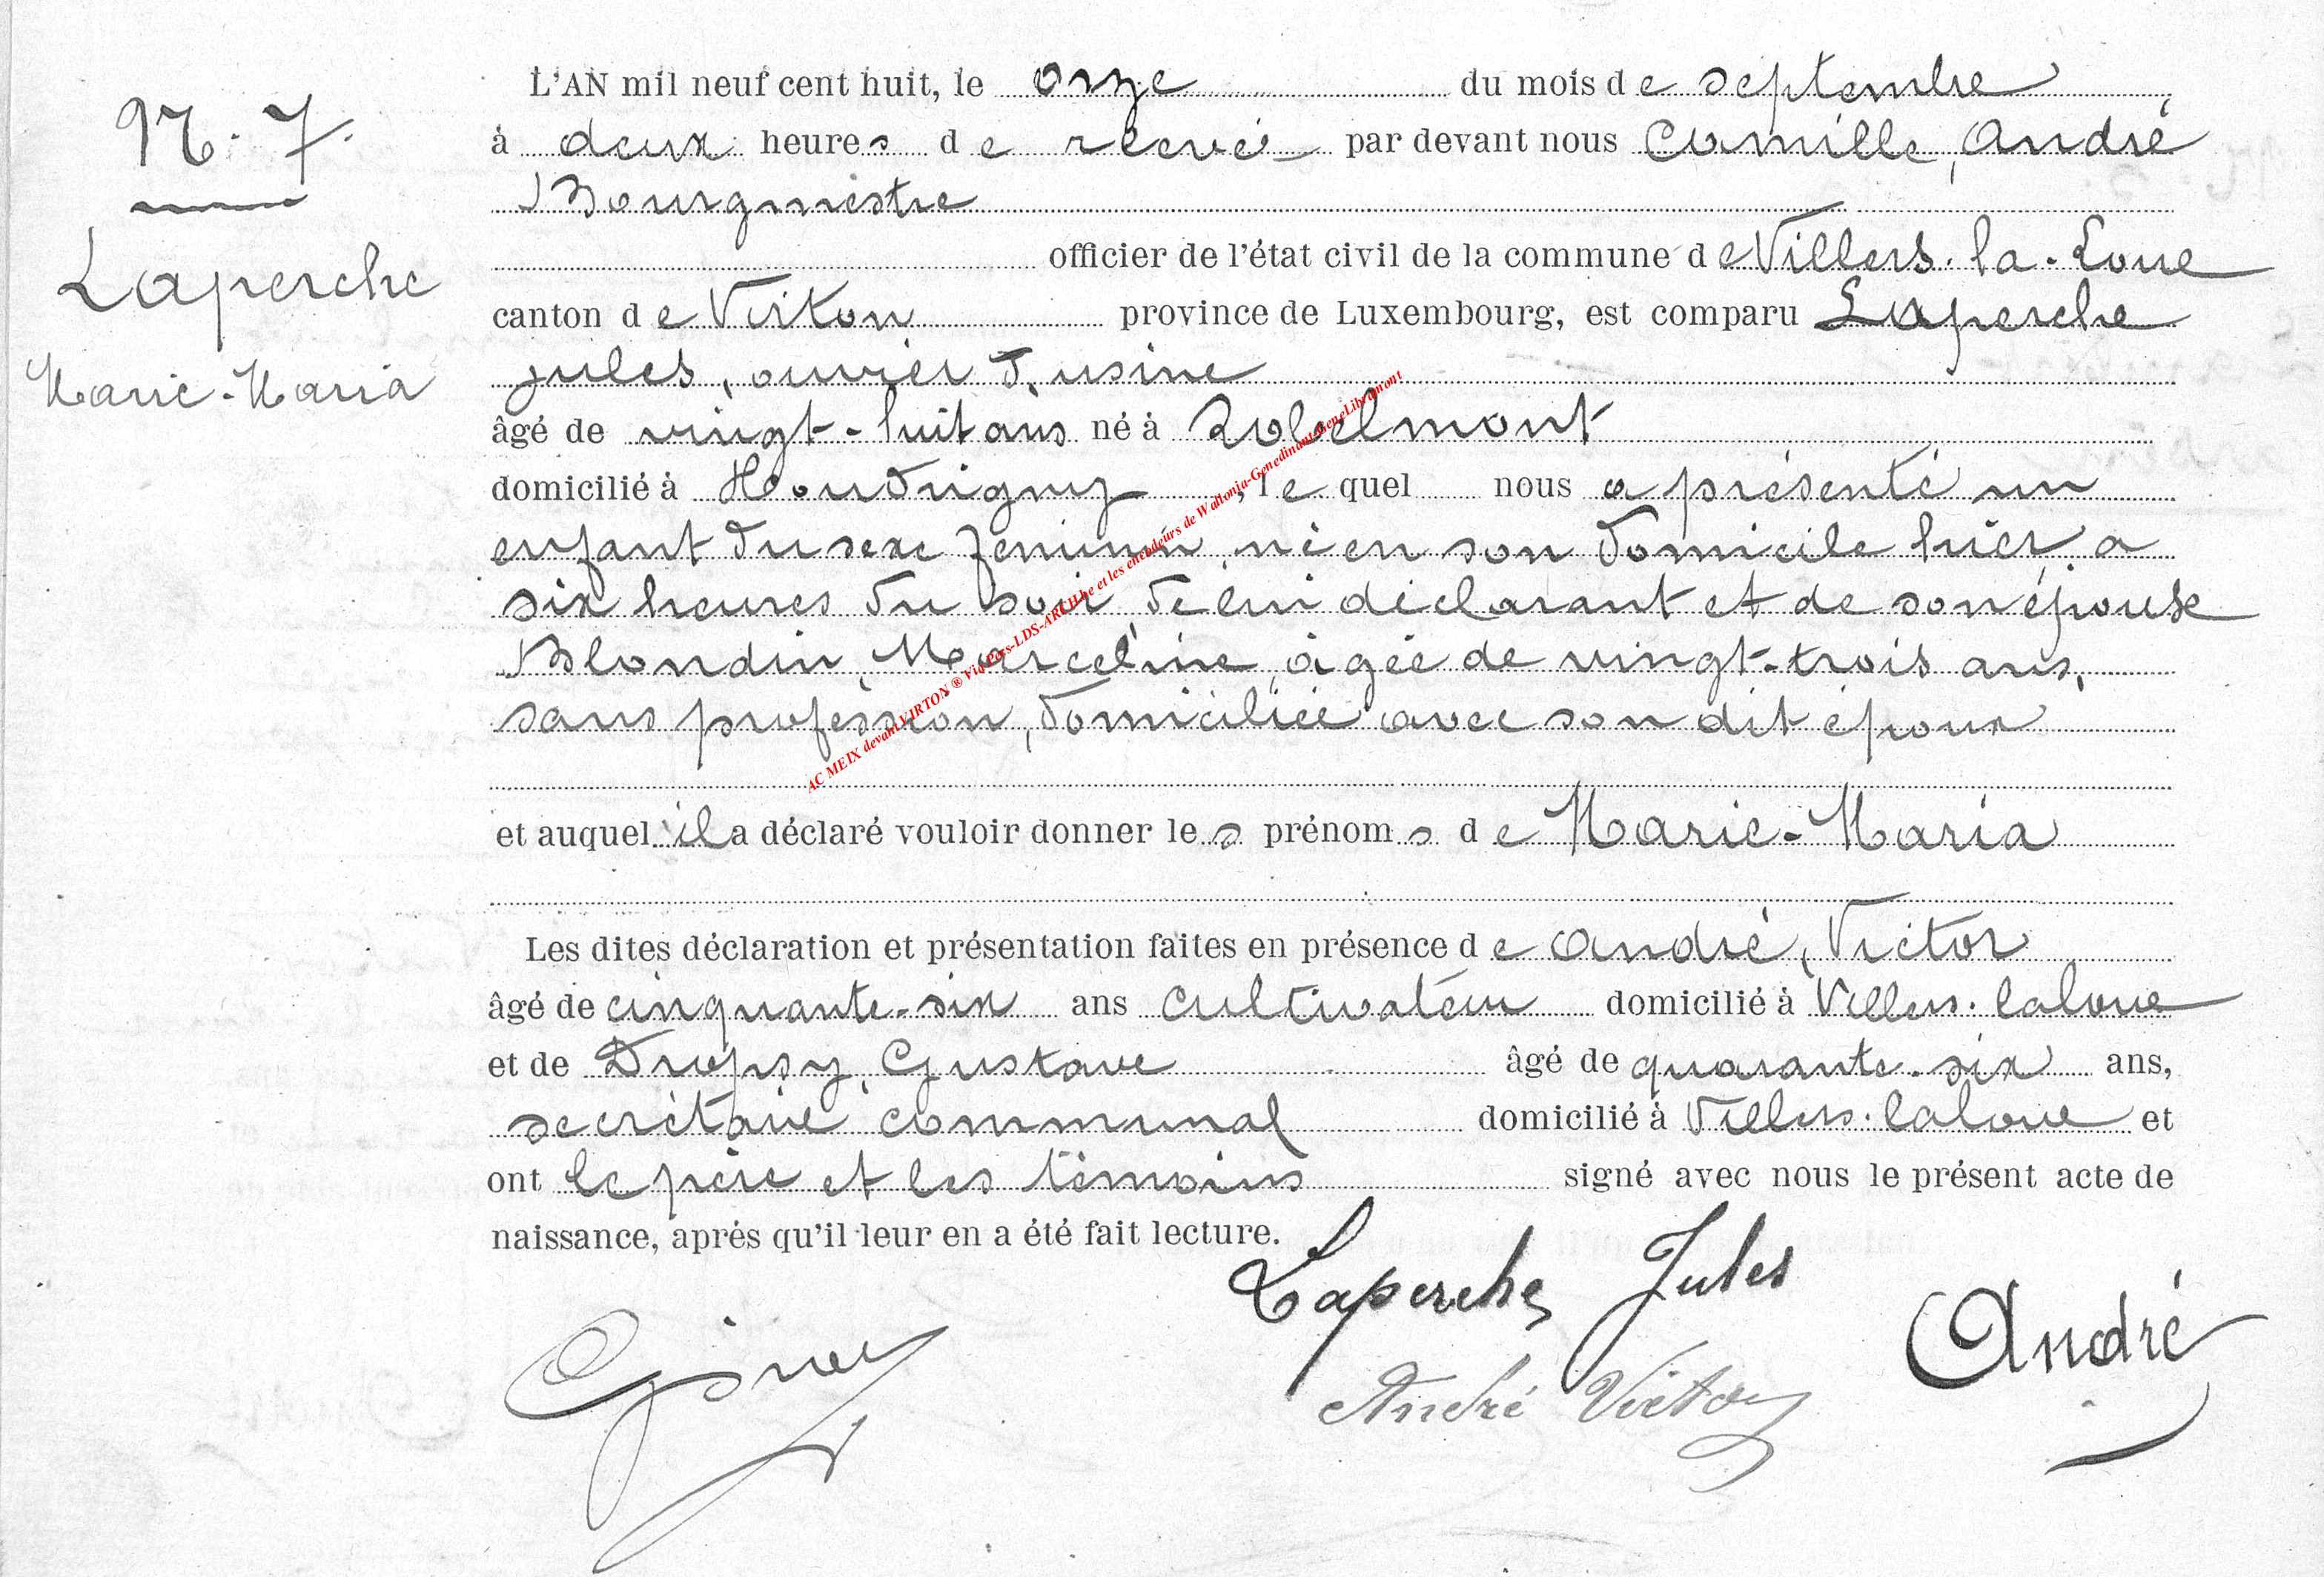 N. 7.
Laperche
Marie-Maria
L'AN mil neuf cent huit, le onze du mois de septembre,
à deux heures de relevée par devant nous Camille, André
Bourgmestre
officier de l'état civil de la commune de Villers-la-Loue
canton de Virton province de Luxembourg, est comparu Laperche
Jules, ouvrier d'usine
âgé de vingt-huit ans né à Robelmont
domicilié à Houdrigny, lequel nous a présenté un
enfant du sexe féminin, né en son domicile hier, à
six heures du soir, de lui déclarant et de son épouse
Blondin, Marceline, âgée de vingt-trois ans,
sans profession, domiciliée avec son dit époux
et auquel il a déclaré vouloir donner les prénoms de Marie-Maria
Les dites déclaration et présentation faites en présence de André, Victor
âgé de cinquante-six ans cultivateur domicilié à Villers-laloue
et de Dropsy, Gustave âgé de quarante-six ans,
secrétaire communal domicilié à Villers-laloue et
ont le père et les témoins signé avec nous le présent acte de
naissance, après qu'il leur en a été fait lecture.
Laperche Jules
André
André Victor
AC MEIX devant VIRTON ® Via Pers-LDS-ARCH.be et les encodeurs de Wallonia-Genedinant-GeneLibramont